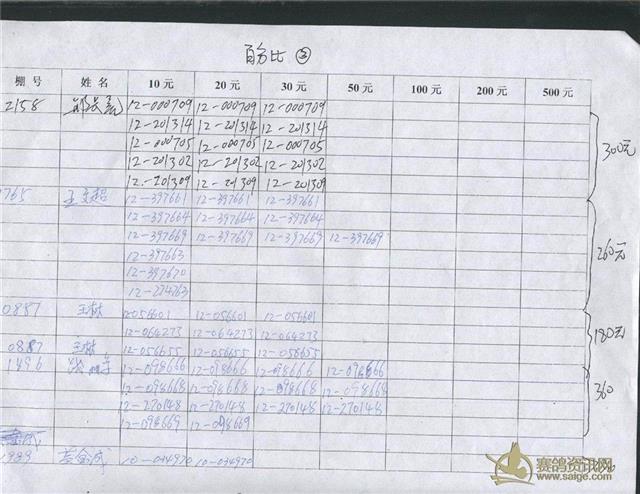 百分比 ③
棚号 姓名 10元 20元 30元 50元 100元 200元 500元
2158 12-000709 12-000709 12-000709
12-201314 12-201314 12-201314
12-000705 12-000705 12-000705
12-201302 12-201302 12-201302
12-201309 12-201309 12-201309
300元
765 王文超 12-397661 12-397661 12-397661
12-397664 12-397664 12-397664
12-397669 12-397669 12-397669 12-397669
12-397663
12-397670
12-274763
260元
0887 王林 12-056601 12-056601 12-056601
12-064273 12-064273 12-064273
0887 王林 12-056655 12-056655 12-056655
180元
1496 12-098666 12-098666 12-098666 12-098666
12-098668 12-098668 12-098668 12-098668
12-270148 12-270148 12-270148 12-270148
12-098669 12-098669
360
1989 10-034970 10-034970
赛鸽资讯网
www.saige.com